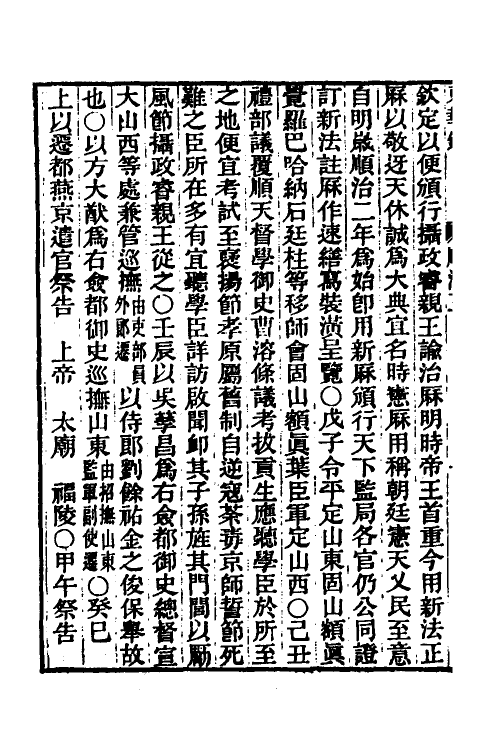 欽定以便頒行攝政睿親王諭治厤明時帝王首重今用新法正
厤以敬迓天休誠爲大典宜名時憲厤用稱朝廷憲天乂民至意
自明歲順治二年爲始卽用新厤頒行天下監局各官仍公同證
訂新法註厤作速繕寫裝潢呈覽〇戊子令平定山東固山額眞
覺羅巴哈納石廷柱等移師會固山額眞葉臣軍定山西〇己丑
禮部議覆順天督學御史曹溶條議考拔貢生應聽學臣於所至
之地便宜考試至襃揚節孝原屬舊制自逆寇荼毒京師誓節死
難之臣所在多有宜聽學臣詳訪啟聞卹其子孫旌其門閭以勵
風節攝政睿親王從之〇壬辰以吳孳昌爲右僉都御史總督宣
大山西等處兼管巡撫由吏部員外郞遷以侍郞劉餘祐金之俊保舉故
也〇以方大猷爲右僉都御史巡撫山東由招撫山東監軍副使遷〇癸巳
上以遷都燕京遣官祭告　上帝　太廟　福陵〇甲午祭告